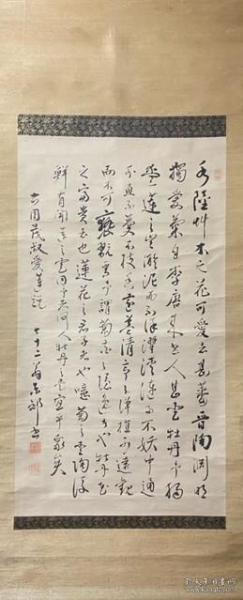 水陸艸木之花可愛者甚蕃晉陶淵明
獨愛菊自李唐來世人甚愛牡丹予獨
愛蓮之出淤泥而不染濯清漣而不妖中通
外直不蔓不枝香遠益清亭亭淨植可遠觀
而不可褻翫焉予謂菊花之隱逸者也牡丹花
之富貴者也蓮花之君子者也噫菊之愛陶後
鮮有聞蓮之愛同予者何人牡丹之愛宜乎衆矣
右周茂叔愛蓮説 七十二翁書